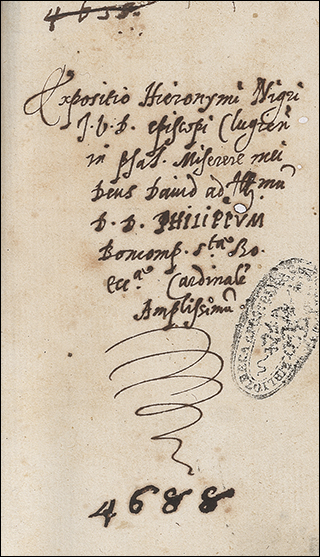 Expositio Hieronymi Nigri
J.V.D. episcopi Clugien
in psal. Miserere mei
Deus David ad Illmũ
D. D. PHILIPPVM
Boncomp. s.tae Ro.
ecc.ae Cardinalẽ
Amplissimũ
4688